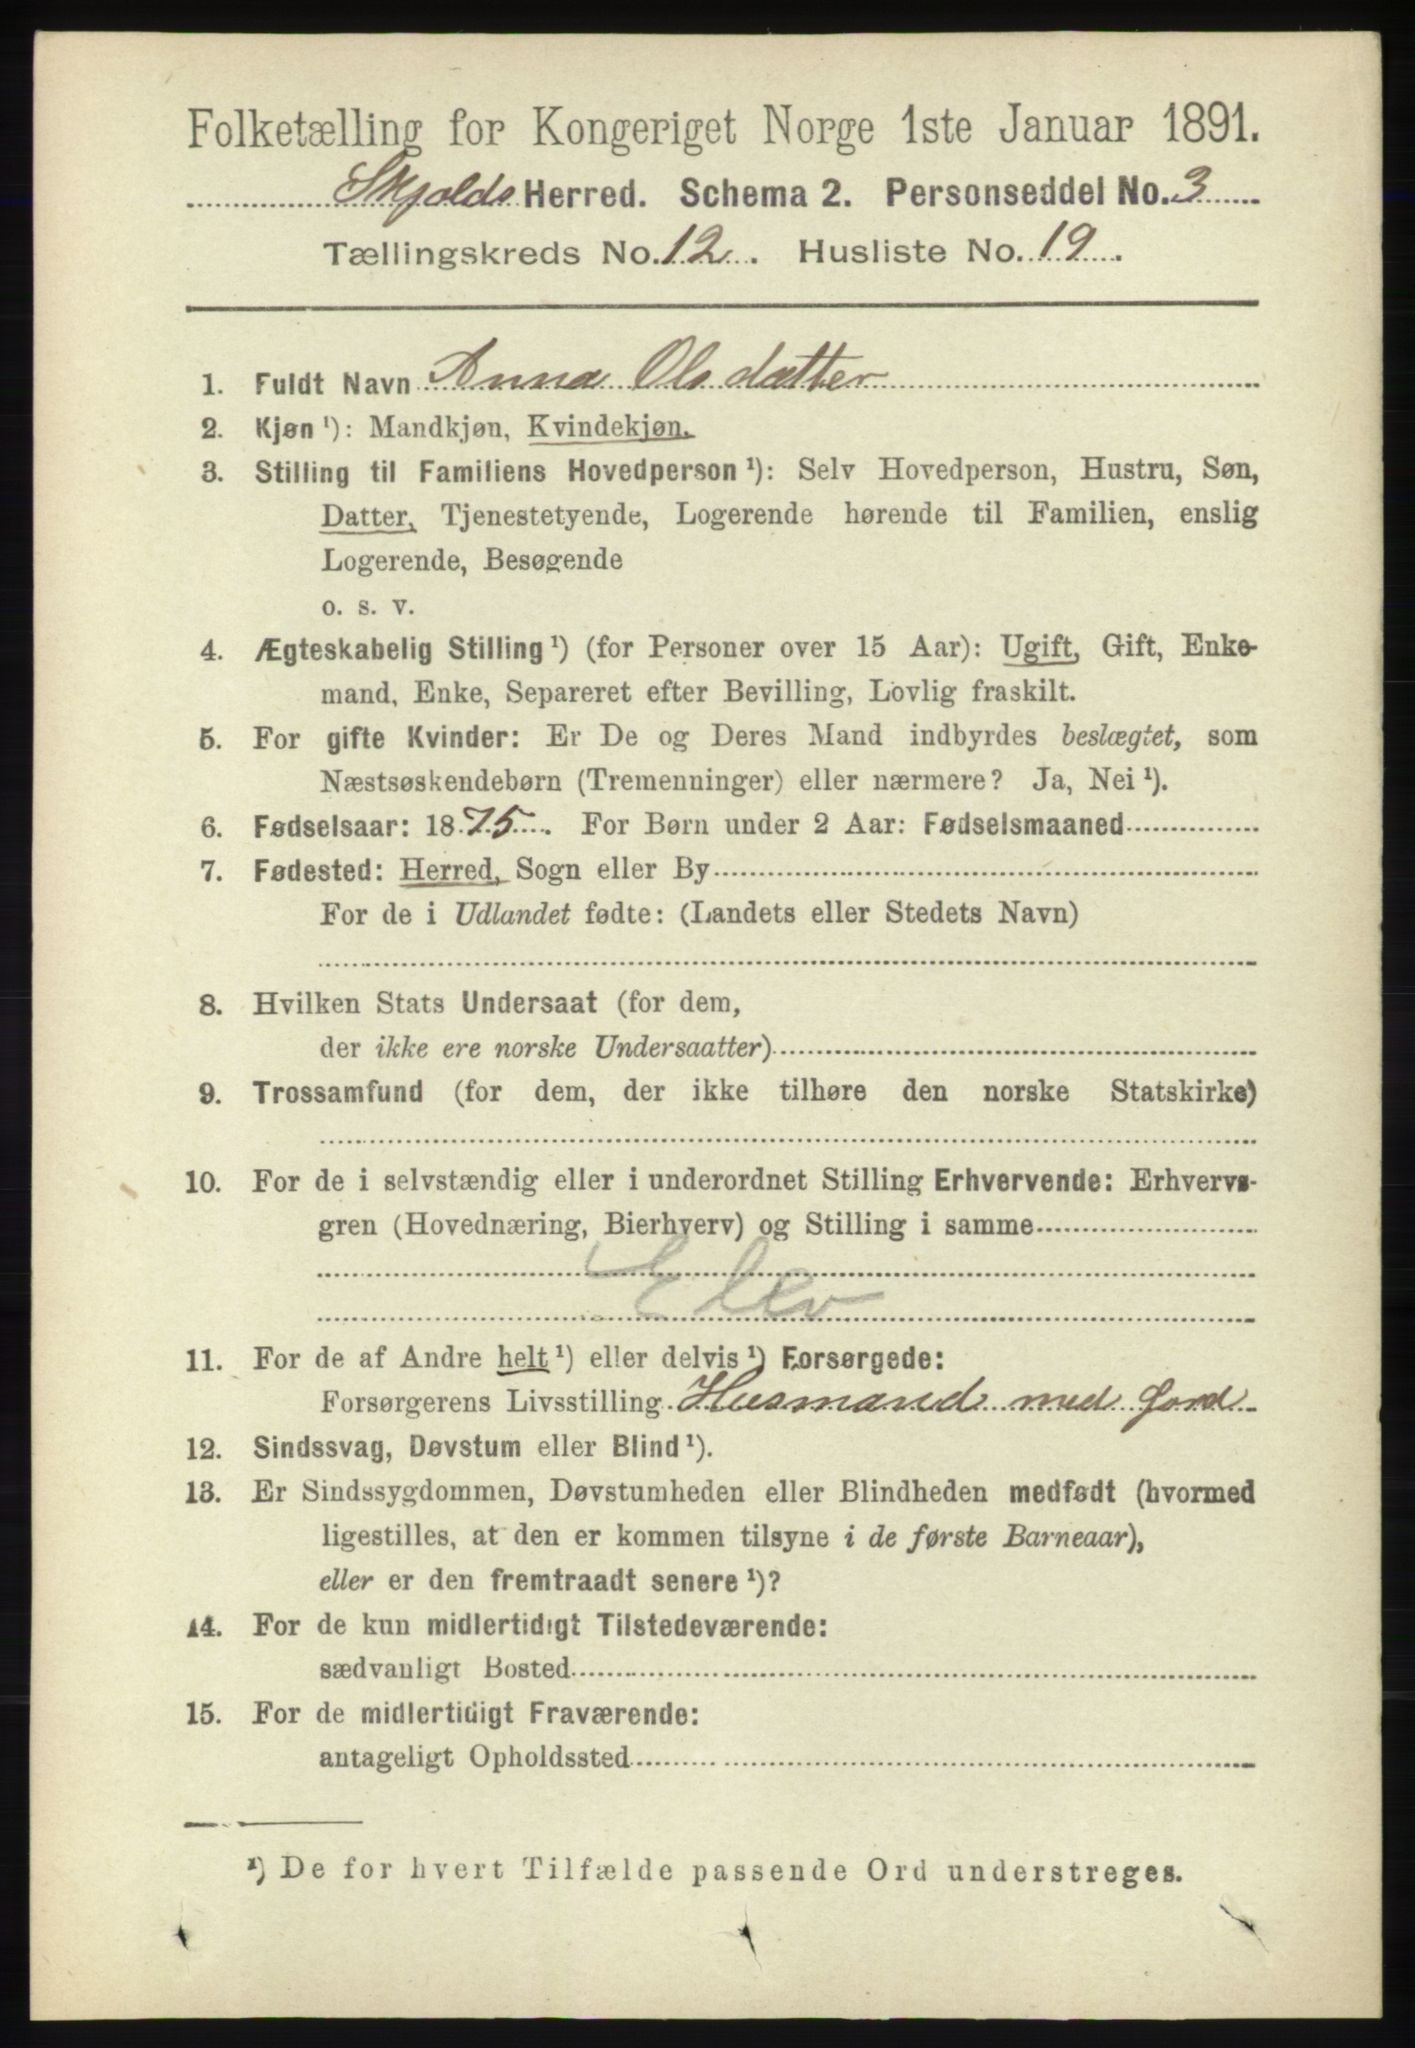 Folketælling for Kongeriget Norge 1ste Januar 1891.
Skjolds Herred. Schema 2. Personseddel No. 3
Tællingskreds No. 12. Husliste No. 19.
1. Fuldt Navn Anna Olsdatter
2. Kjøn ¹): Mandkjøn, Kvindekjøn.
3. Stilling til Familiens Hovedperson ¹): Selv Hovedperson, Hustru, Søn,
Datter, Tjenestetyende, Logerende hørende til Familien, enslig
Logerende, Besøgende
o. s. v.
4. Ægteskabelig Stilling ¹) (for Personer over 15 Aar): Ugift, Gift, Enke-
mand, Enke, Separeret efter Bevilling, Lovlig fraskilt.
5. For gifte Kvinder: Er De og Deres Mand indbyrdes beslægtet, som
Næstsøskendebørn (Tremenninger) eller nærmere? Ja, Nei ¹).
6. Fødselsaar: 1875. For Børn under 2 Aar: Fødselsmaaned
7. Fødested: Herred, Sogn eller By
For de i Udlandet fødte: (Landets eller Stedets Navn)
8. Hvilken Stats Undersaat (for dem,
der ikke ere norske Undersaatter)
9. Trossamfund (for dem, der ikke tilhøre den norske Statskirke)
10. For de i selvstændig eller i underordnet Stilling Erhvervende: Erhvervs-
gren (Hovednæring, Bierhverv) og Stilling i samme
Elev
11. For de af Andre helt ¹) eller delvis ¹) Forsørgede:
Forsørgerens Livsstilling Husmand med Jord
12. Sindssvag, Døvstum eller Blind ¹).
13. Er Sindssygdommen, Døvstumheden eller Blindheden medfødt (hvormed
ligestilles, at den er kommen tilsyne i de første Barneaar),
eller er den fremtraadt senere ¹)?
14. For de kun midlertidigt Tilstedeværende:
sædvanligt Bosted
15. For de midlertidigt Fraværende:
antageligt Opholdssted
¹) De for hvert Tilfælde passende Ord understreges.